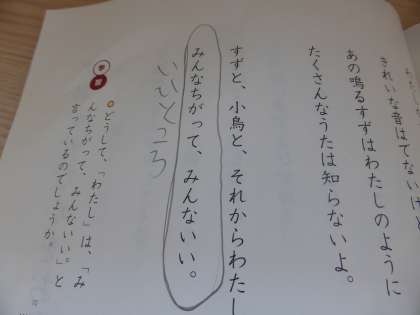 きれいな音はでないけど
あの鳴るすずはわたしのように
たくさんなうたは知らないよ。
すずと、小鳥と、それからわたし
みんなちがって、みんないい。
いいところ
学習
どうして、「わたし」は、「み
んなちがって、みんないい。」と
言っているのでしょうか。